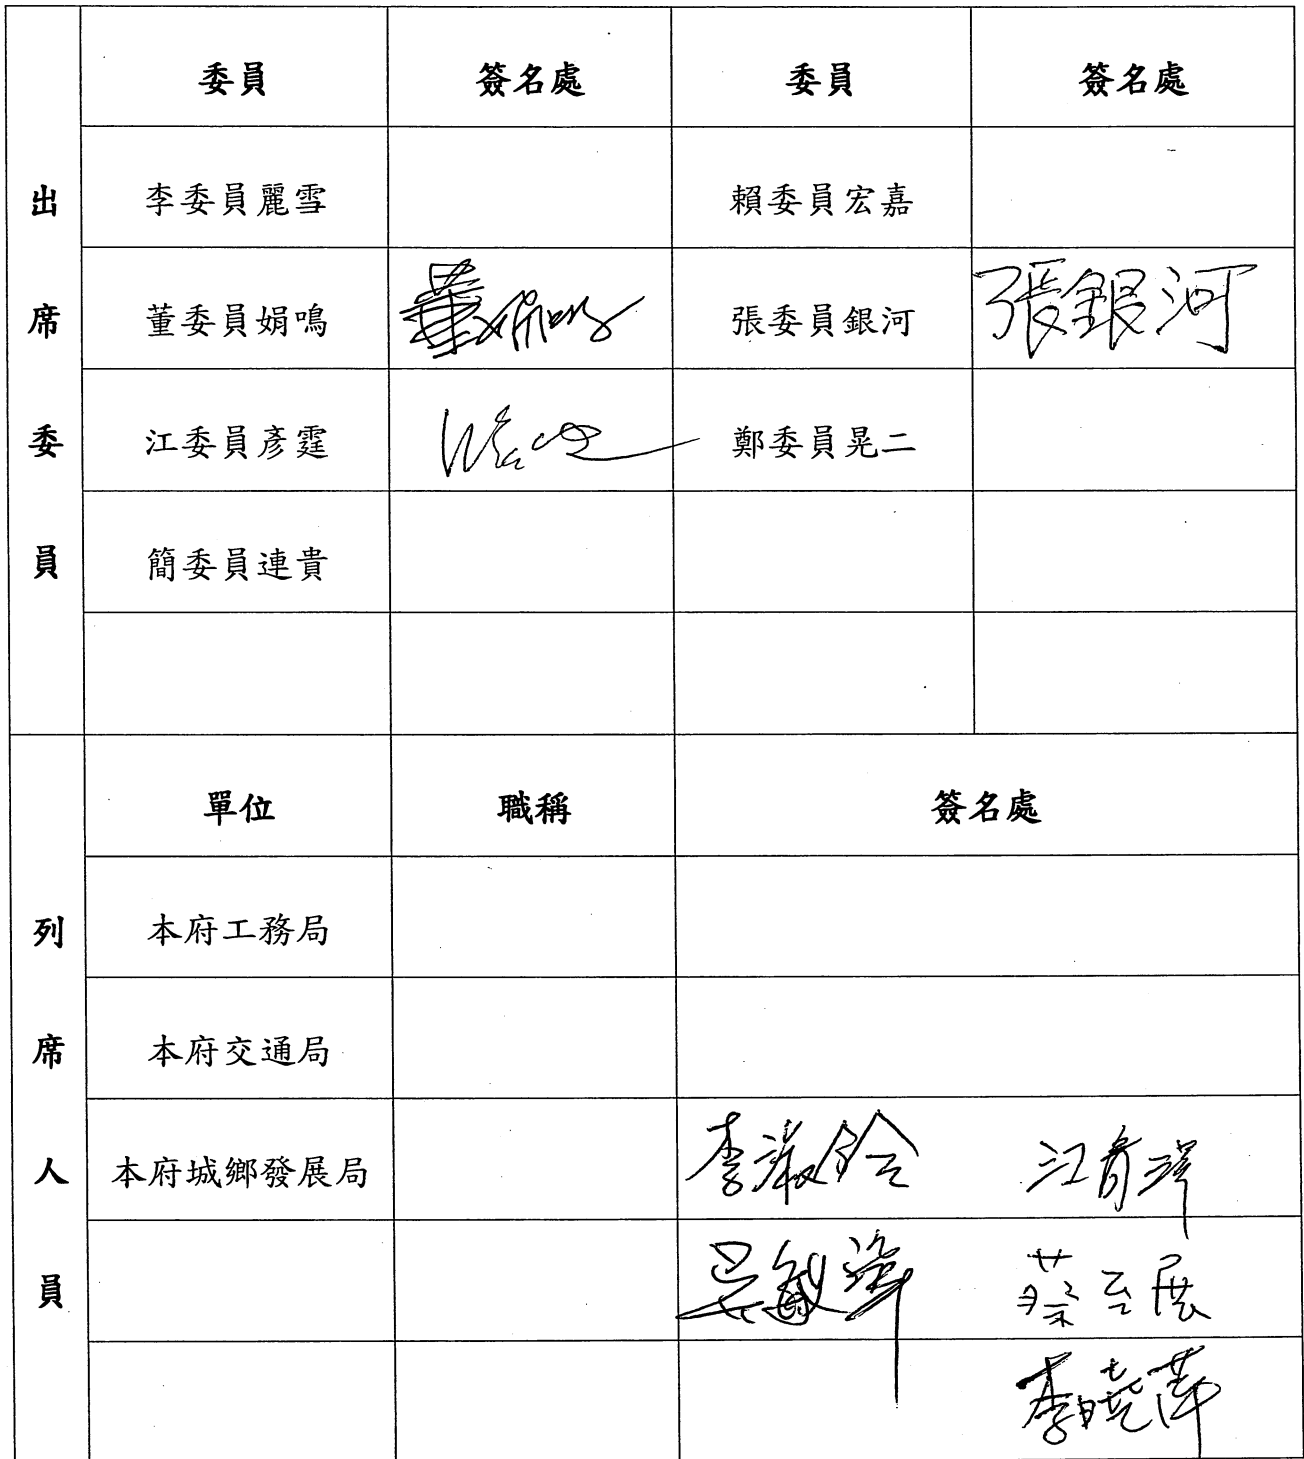 出席委員
委員 簽名處 委員 簽名處
李委員麗雪 賴委員宏嘉
董委員娟鳴 董娟鳴 張委員銀河 張銀河
江委員彥霆 鄭委員晃二
簡委員連貴
列席人員
單位 職稱 簽名處
本府工務局
本府交通局
本府城鄉發展局 李淑鈴 江育
吳 蔡至展
李曉萍